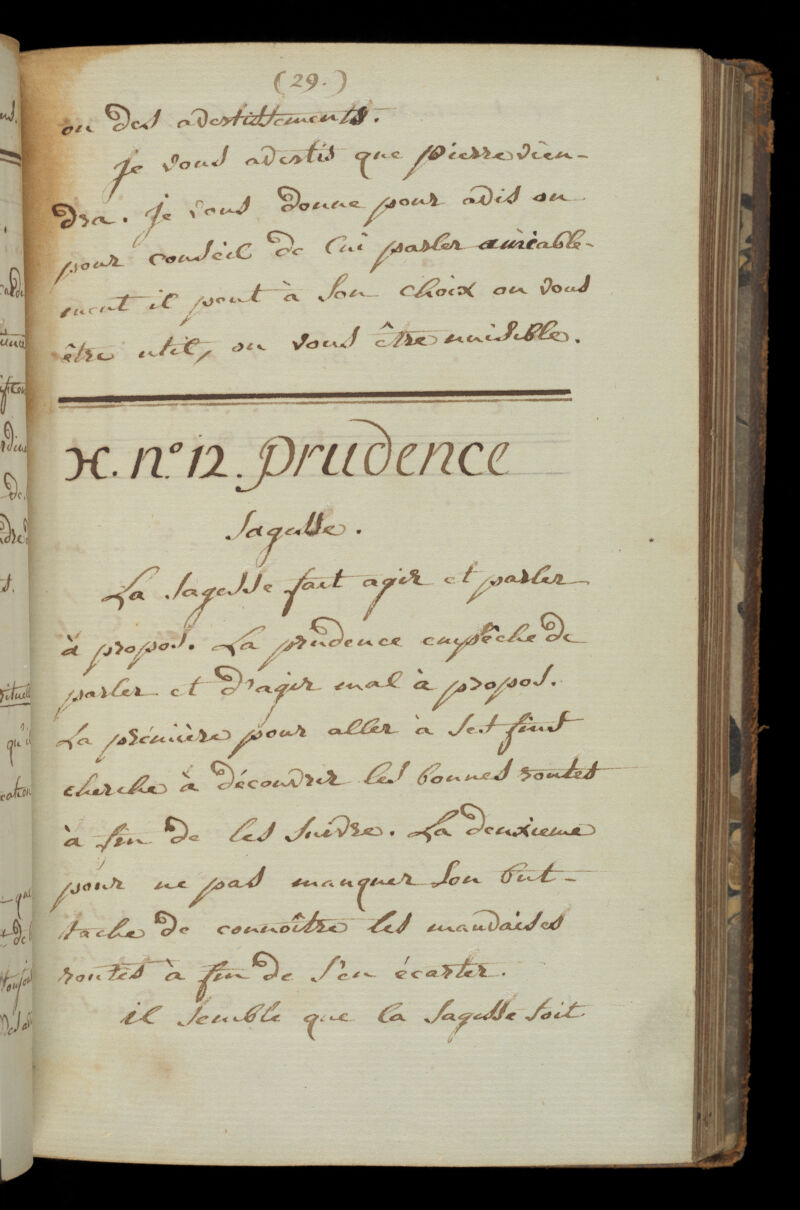 (29.)
ou des avertissements.
Je vous avertis que pierre vien-
dra. Je vous donne pour avis ou
pour conseil de lui parler amicable-
ment il peut à son choix ou vous
être util, ou vous être nuisible.
H. n.º 12. prudence
Sagesse.
La Sagesse fait agir et parler
à propos. La prudence empêche de
parler et d'agir mal à propos.
La prémière pour aller à ses fins
cherche à découvrir les bonnes routes
à fin de les suivre. La deuxieme
pour ne pas manquer son but-
tache de connoître les mauvaises
routes à fin de s'en écarter.
il semble que la sagesse soit